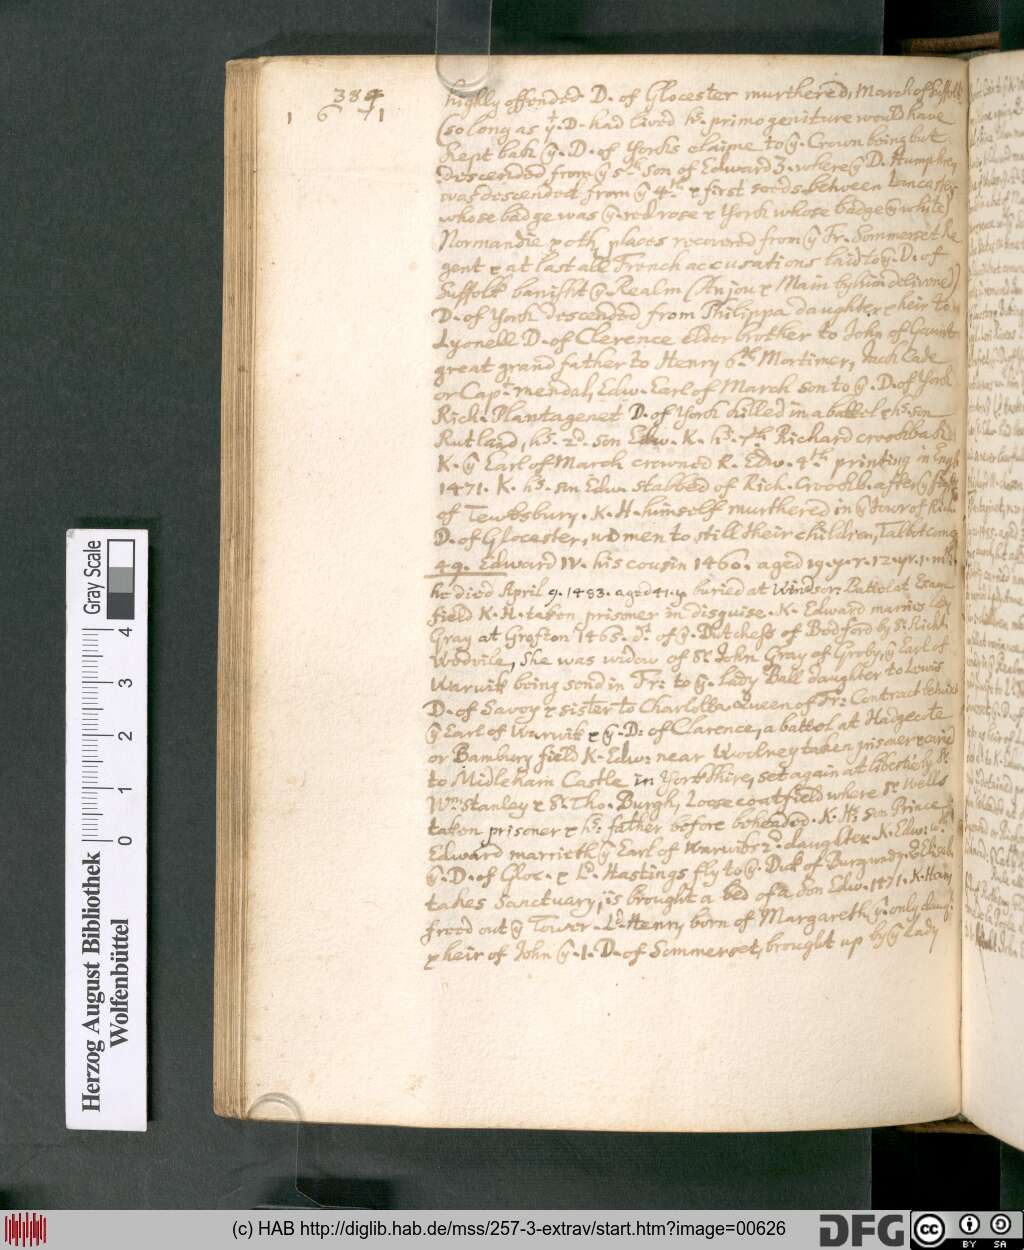 384
1 6 71
highly offended D. of Glocester murthered, March of Suffolk
(so long as yt. D. had lived hs. primogeniture would have
kept bak ye. D. of Yorks claime to ye. Crown being but
descended from ye 5th. son of Edward 3. where ye D. Humphrey
was descended from ye 4th. & first seeds between Lancaster
whose badge was ye. red rose & York whose badge ye white)
Normandie & oth. places recovered from ye Fr. Sommerset Re
gent & at last all French accusations laid to ye. D. of
Suffolk banisht ye. Realm (Anjou & Main by him delivered)
D. of York descended from Philippa daughter & heir to
Lyonell D. of Clerence elder brother to John of Gaunt
great grand father to Henry 6th. Mortimer, Jack Cade
or Capt. mendal, Edw. Earl of March son to ye. D. of York
Rich. Plantagenet D. of York killed in a battel & hs. son
Rutland, hs. 2d. son Edw. K. hs. 7th. Richard crookback
K. ye Earl of March crowned K. Edw. 4th. printing in Engl.
1471. K. hs. son Edw. stabbed of Rich. Crookb. after ye fight
of Tewksbury. K. H. himself murthered in ye Tour of Rich.
D. of Glocester, women to still their children, Talbot comes
49. Edward IV. his cousin 1460. aged 19. y. r. 22. yr. 1. mth.
he died April 9. 1483. aged 41. y buried at Windsor: Battel at
field K. H. taken prisoner in disguise. K. Edward marries Lady
Gray at Grafton 1465. dr. of ye. Dutchess of Bedford by Sr. Richd.
Woodvile, she was widow of Sr. John Gray of Groby, ye Earl of
Warwik being send in Fr: to ye. lady Ball daughter to Lewis
D. of Savoy & sister to Charlotta Queen of Fr: Contract betwixt
ye Earl of Warwik & ye. D: of Clarence, a battel at Hadgecote
or Bambury field K. Edw: near Woolney taken prisoner & caried
to Midleham Castle in Yorkshire, set again at libertie by Sr.
Wm. Stanley & Sr. Tho. Burgh, Loosecoatfield where Sr. Wells
taken prisoner & hs. father before beheaded. K. Hs. son Prince
Edward marrieth ye Earl of Warwiks 2d. daughter. K. Edw: with
ye. D. of Gloc. & Ld. Hastings fly to ye. Duk of Burgundy. Q. Elizab.
takes Sanctuary, is brought a bed of a son Edw. 1471. K. Henry
freed out ye Tower. Ld. Henry born of Margareth ye. only daugh.
& heir of John ye. 1. D. of Sommerset, brought up by ye Lady
Herzog August Bibliothek
Wolfenbüttel
Gray Scale
0 1 2 3 4
(c) HAB http://diglib.hab.de/mss/257-3-extrav/start.htm?image=00626
DFG
cc BY SA